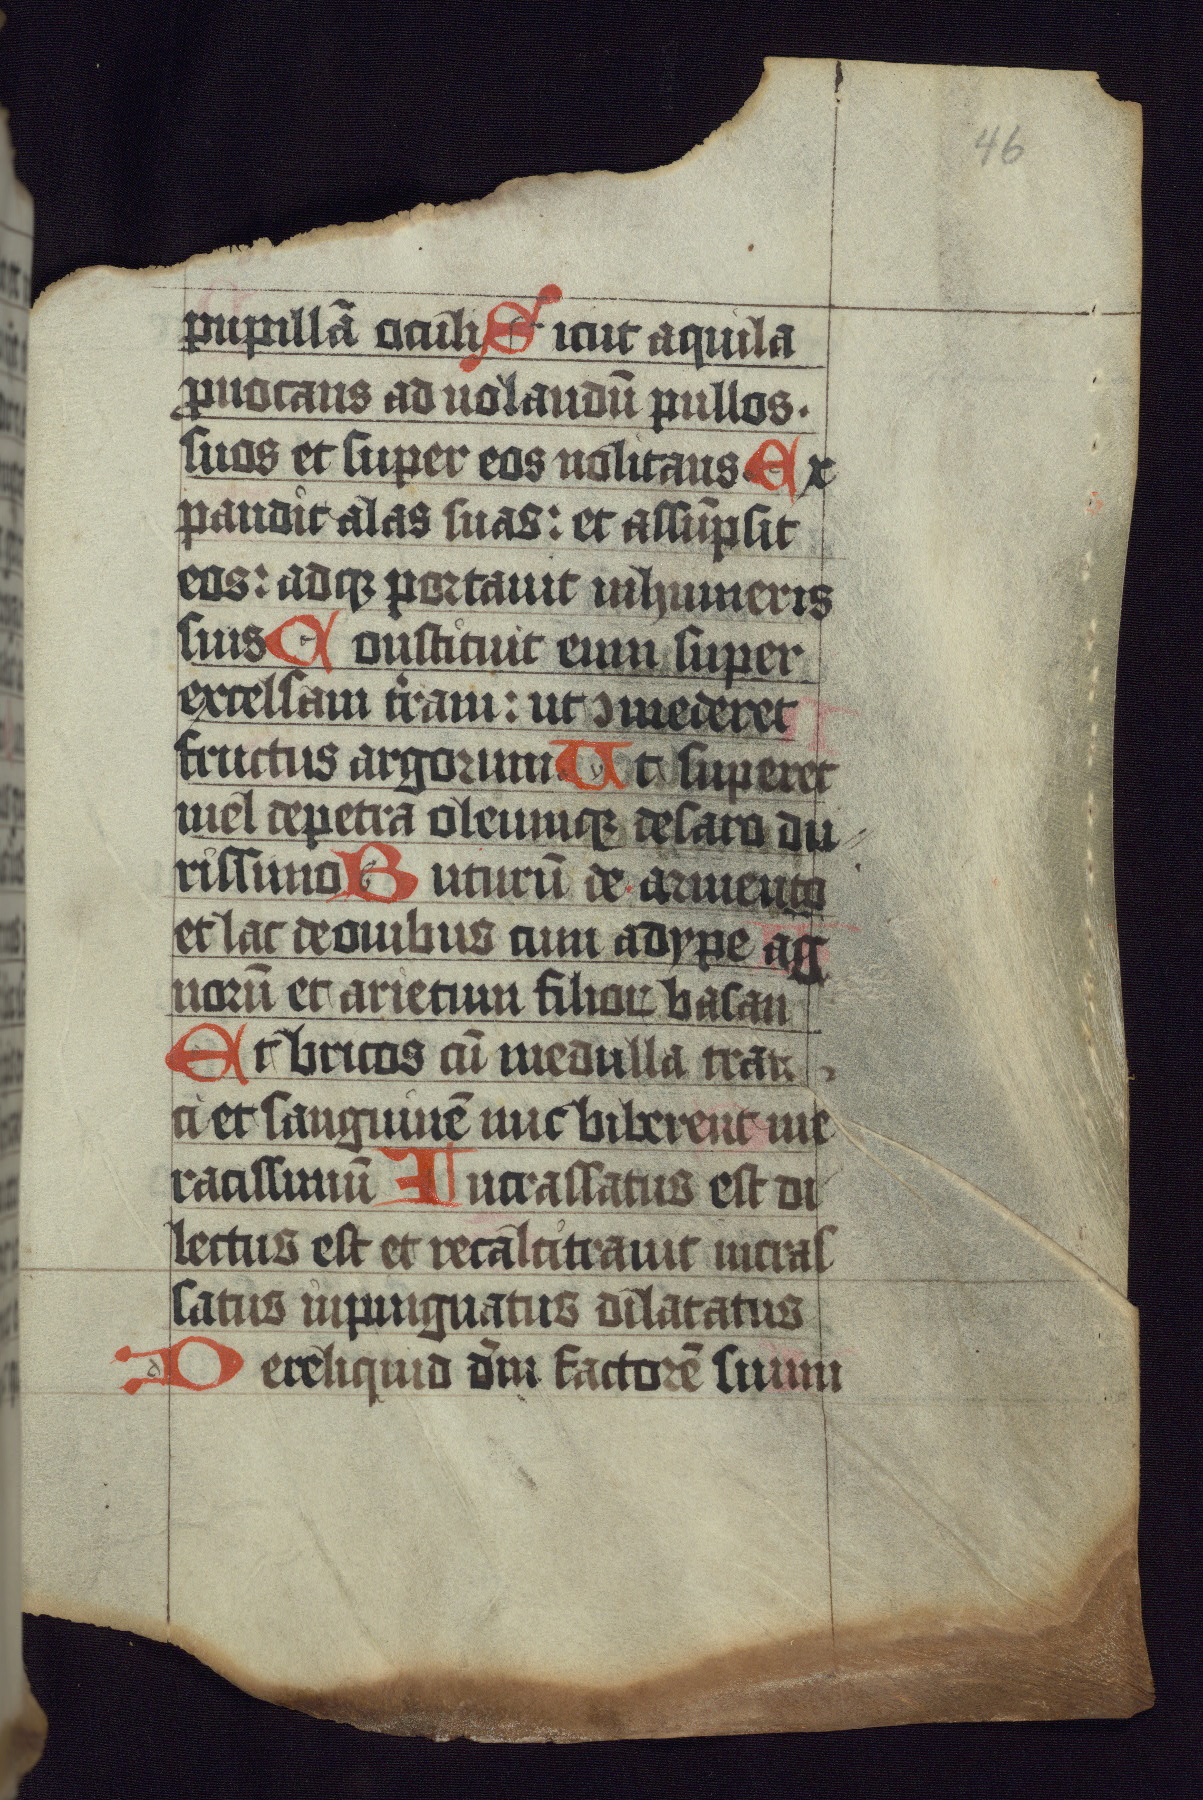 46
pupillā oculi Sicut aquila
ꝓuocans ad uolandū pullos.
suos et super eos uolitans. Ex
pandit alas suas: et assūpsit
eos: adqꝫ portauit inhumeris
suis Constituit eum super
excelsam t̄ram: ut ꝯmederet
fructus argorum. Ut superet
mel depetra oleumqꝫ desaxo du
rissimo Buturū de armento
et lac deouibus cum adype ag
norū et arietum filioꝝ basan
Et hircos cū medulla trati
ci et sanguinē uuc biberent me
racissimū Incrassatus est di
lectus est et recalcitrauit incras
satus inpinguatus dilatatus
Dereliquid dm̄ factorē suum